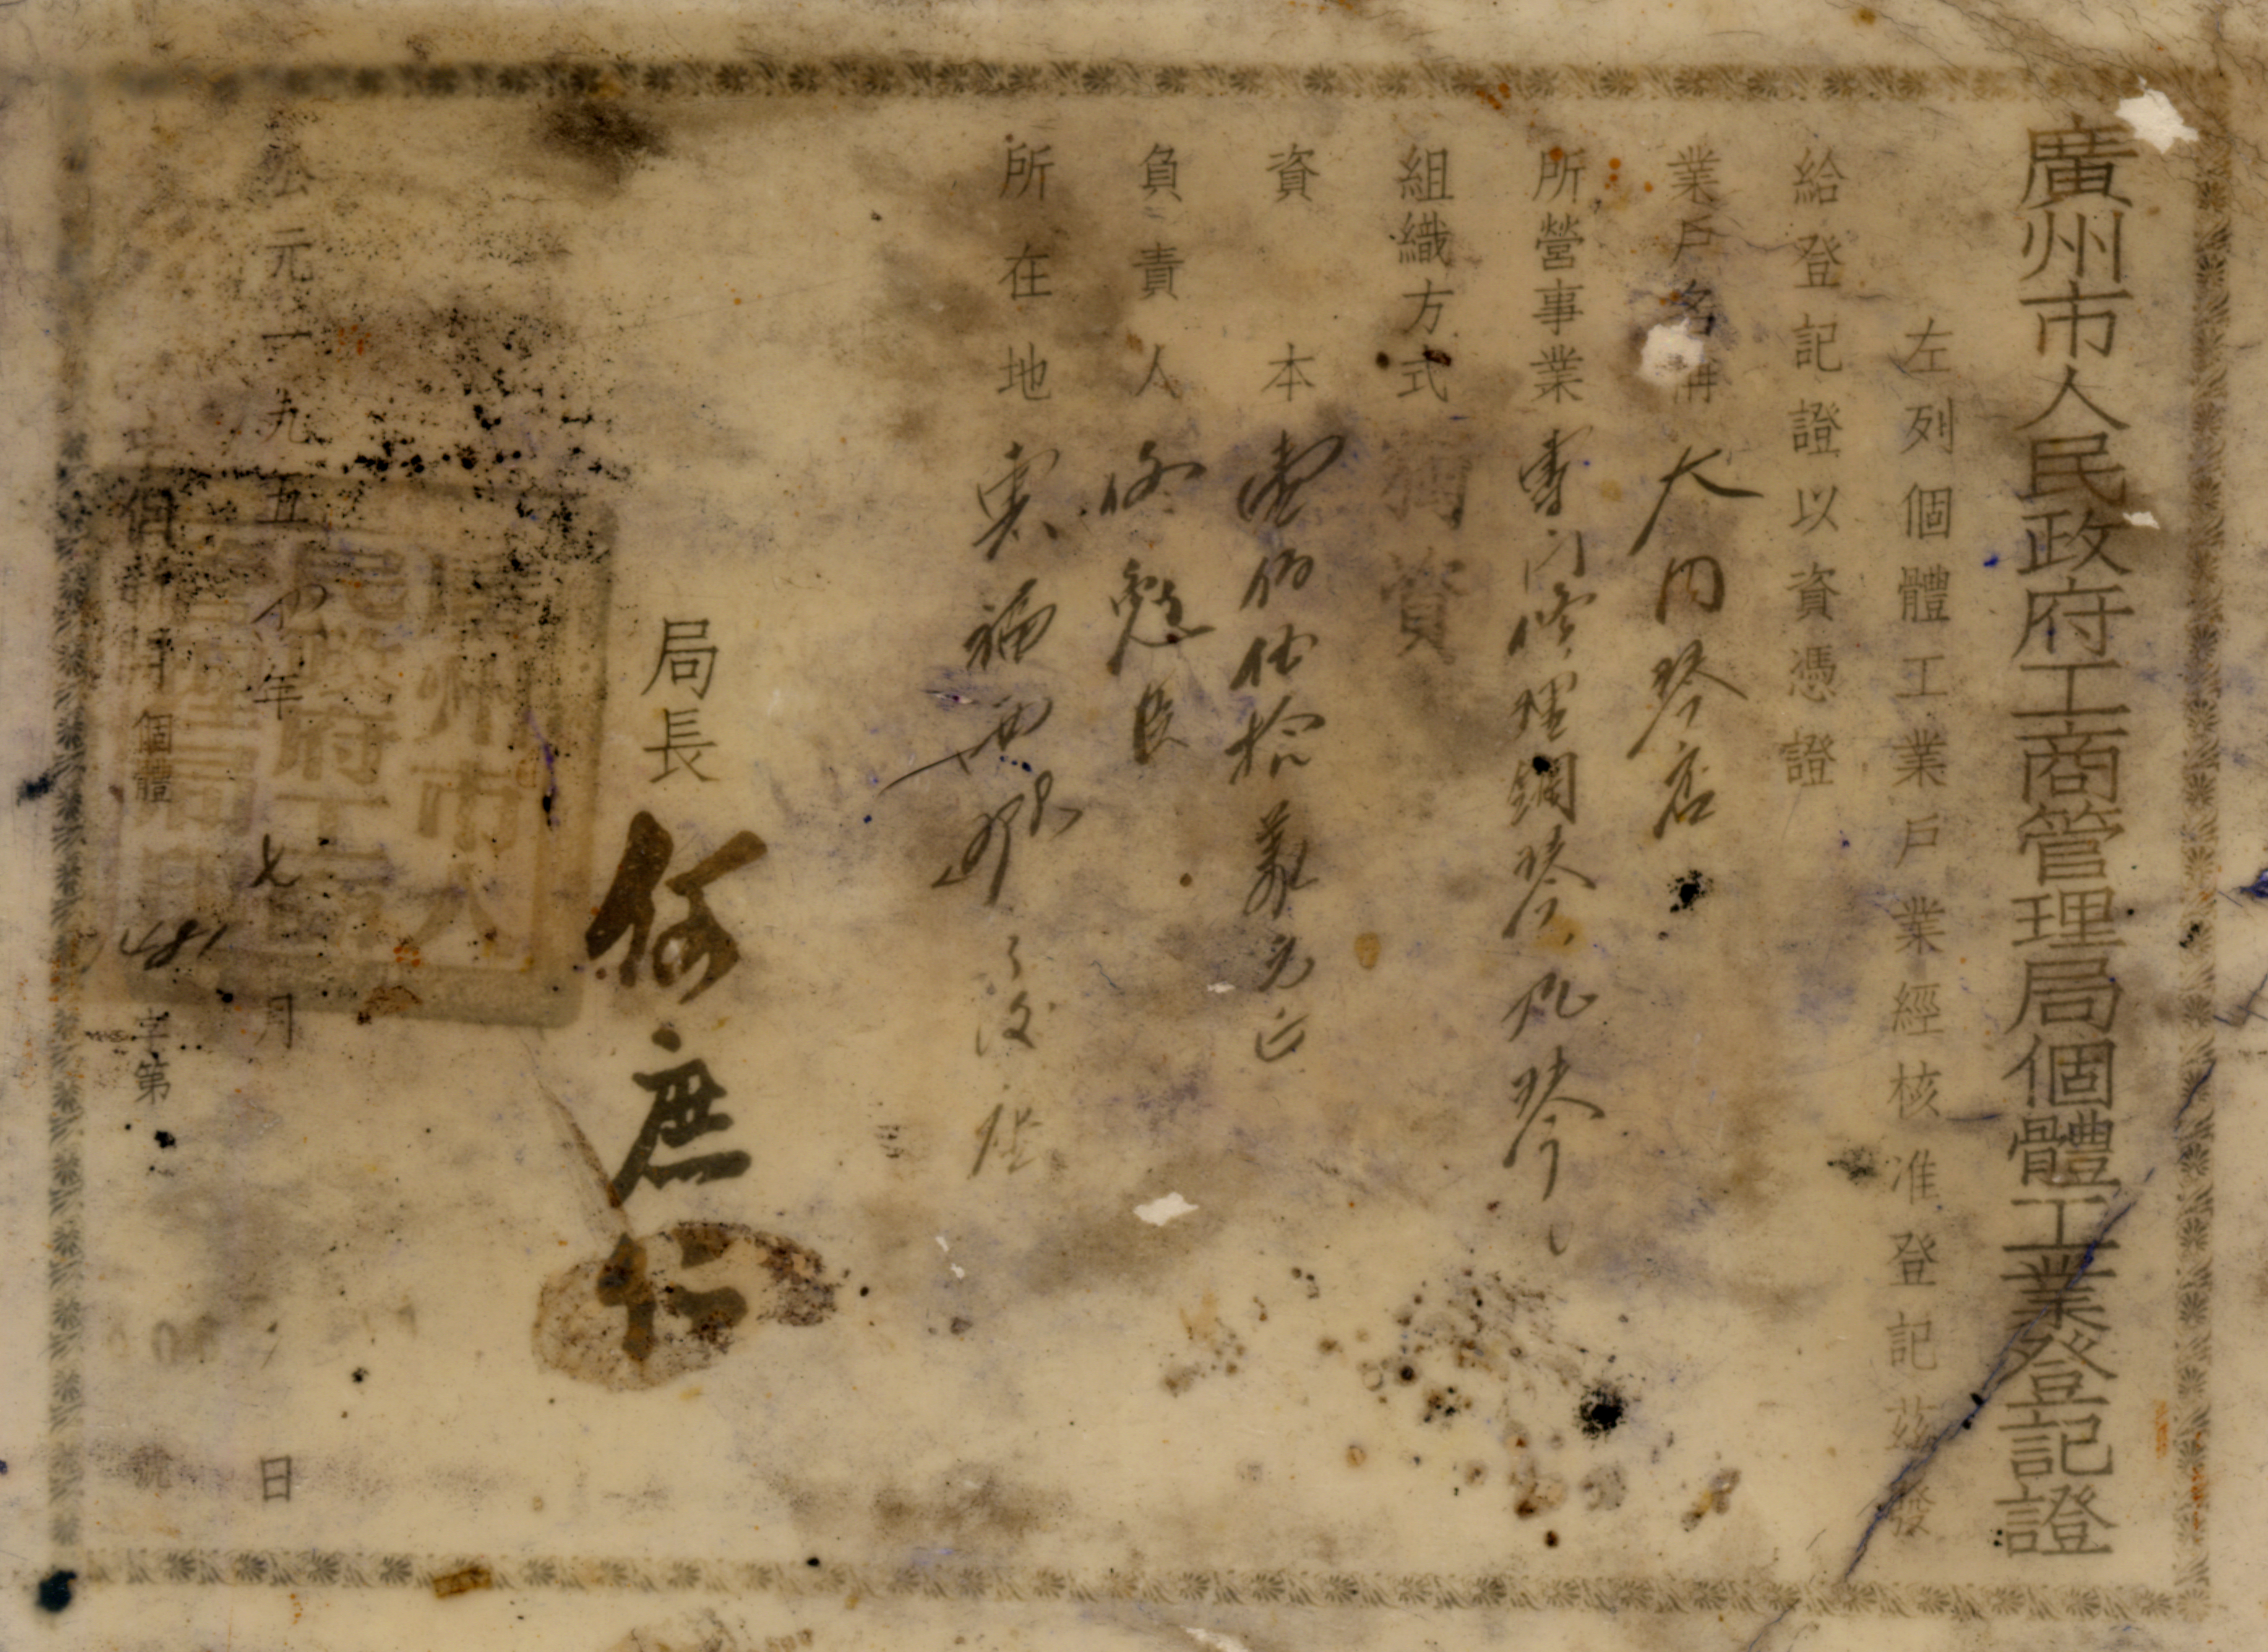 廣州市人民政府工商管理局個體工業登記證
左列個體工業戶業經核准登記茲發
給登記證以資憑證
業戶名稱 大同琴店
所營事業 專门修理鋼琴風琴
組織方式 獨資
資本 壹佰伍拾萬元正
負責人 徐
所在地 惠福西路
局長 何庶仁
公元一九五四年七月 日
個體 字第 號